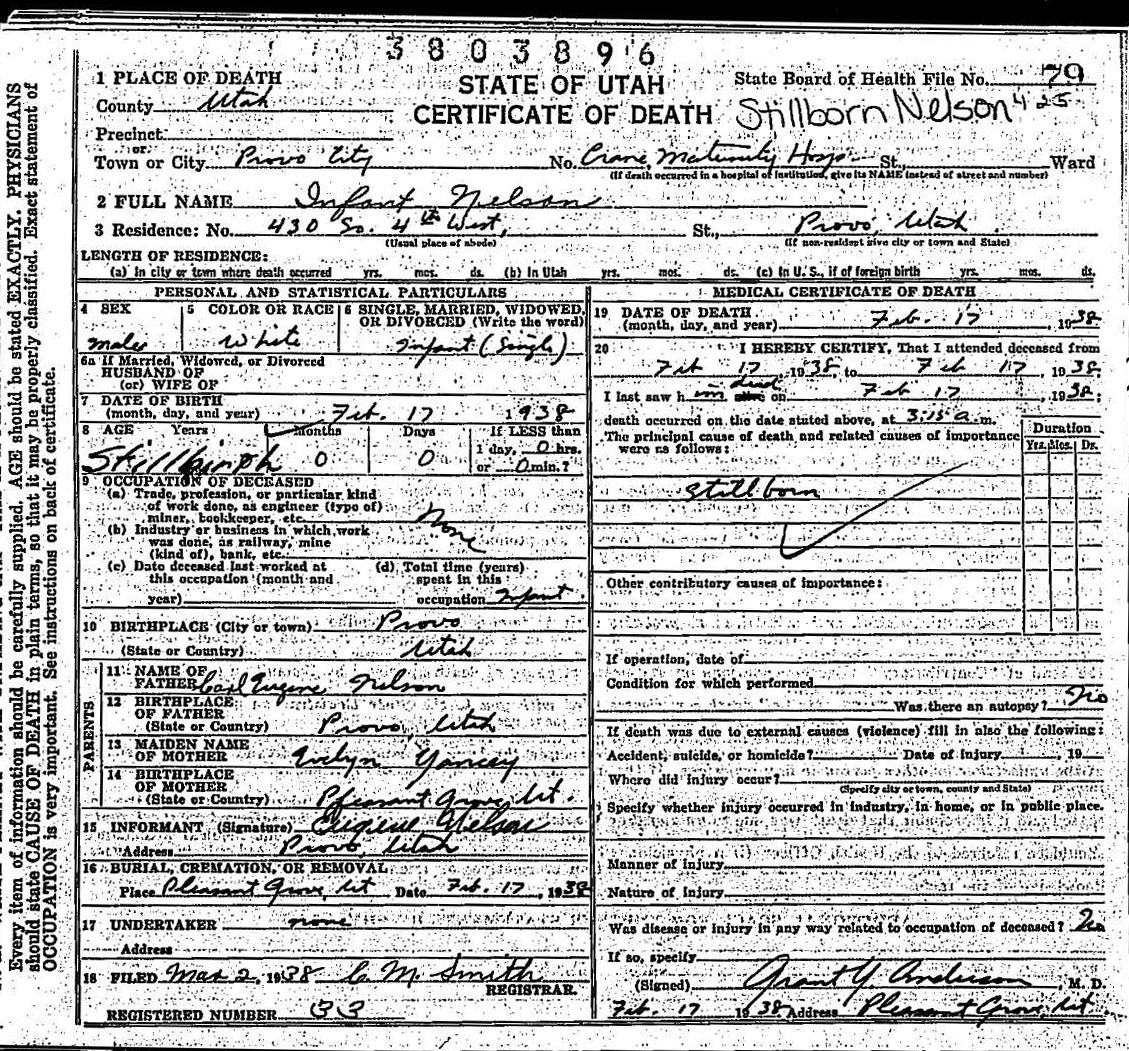 3803896
1 PLACE OF DEATH
STATE OF UTAH
State Board of Health File No. 79
County Utah
CERTIFICATE OF DEATH
Stillborn Nelson 425
Precinct
or
Town or City Provo City No. Crane Maternity Hosp St., Ward
(If death occurred in a hospital or institution, give its NAME instead of street and number)
2 FULL NAME Infant Nelson
3 Residence: No. 430 So. 4th West, St., Provo, Utah
(Usual place of abode) (If non-resident give city or town and State)
LENGTH OF RESIDENCE:
(a) In city or town where death occurred yrs. mos. ds. (b) In Utah yrs. mos. ds. (c) In U. S., if of foreign birth yrs. mos. ds.
PERSONAL AND STATISTICAL PARTICULARS
4 SEX
male
5 COLOR OR RACE
White
6 SINGLE, MARRIED, WIDOWED,
OR DIVORCED (Write the word)
Infant (Single)
6a If Married, Widowed, or Divorced
HUSBAND OF
(or) WIFE OF
7 DATE OF BIRTH
(month, day, and year) Feb. 17 1938
8 AGE Years Months Days If LESS than
1 day, 0 hrs.
Stillbirth 0 0 or 0 min.?
9 OCCUPATION OF DECEASED
(a) Trade, profession, or particular kind
of work done, as engineer (type of)
miner, bookkeeper, etc. None
(b) Industry or business in which work
was done, as railway, mine
(kind of), bank, etc.
(c) Date deceased last worked at
this occupation (month and
year)
(d) Total time (years)
spent in this
occupation Infant
10 BIRTHPLACE (City or town) Provo
(State or Country) Utah
PARENTS
11 NAME OF
FATHER Carl Eugene Nelson
12 BIRTHPLACE
OF FATHER
(State or Country) Provo, Utah
13 MAIDEN NAME
OF MOTHER Evelyn Yancey
14 BIRTHPLACE
OF MOTHER
(State or Country) Pleasant Grove, Ut.
15 INFORMANT (Signature) Eugene Nelson
Address Provo, Utah
16 BURIAL, CREMATION, OR REMOVAL
Place Pleasant Grove, Ut Date Feb. 17, 1938
17 UNDERTAKER none
Address
18 FILED Mar 2, 1938 C. M. Smith
REGISTRAR.
REGISTERED NUMBER 33
MEDICAL CERTIFICATE OF DEATH
19 DATE OF DEATH
(month, day, and year) Feb. 17, 1938
20 I HEREBY CERTIFY, That I attended deceased from
Feb 17, 1938, to Feb 17, 1938
I last saw him dead alive on Feb 17, 1938;
death occurred on the date stated above, at 3:15 a. m.
The principal cause of death and related causes of importance
were as follows:
Duration
Yrs. Mos. Ds.
Stillborn
Other contributory causes of importance:
If operation, date of
Condition for which performed
Was there an autopsy? No
If death was due to external causes (violence) fill in also the following:
Accident, suicide, or homicide? Date of injury , 19
Where did injury occur?
(Specify city or town, county and State)
Specify whether injury occurred in industry, in home, or in public place.
Manner of injury
Nature of injury
Was disease or injury in any way related to occupation of deceased? No
If so, specify
(Signed) Grant Y. Anderson, M. D.
Feb. 17 1938 Address Pleasant Grove, Ut
Every item of information should be carefully supplied. AGE should be stated EXACTLY. PHYSICIANS
should state CAUSE OF DEATH in plain terms, so that it may be properly classified. Exact statement of
OCCUPATION is very important. See instructions on back of certificate.